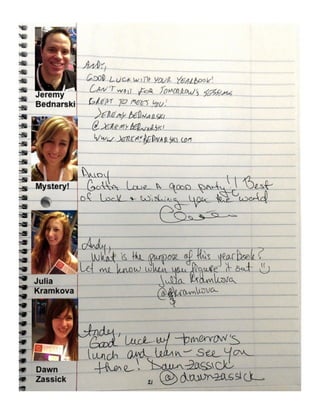 Jeremy
Bednarski
ANDY,
GOOD LUCK WITH YOUR YEARBOOK!
CAN'T WAIT FOR TOMORROW'S SESSIONS
GREAT TO MEET YOU!
JEREMY BEDNARSKI
@JEREMYBEDNARSKI
WWW.JEREMYBEDNARSKI.COM
Mystery!
Andy
Gotta Love A good party!! Best
of Luck + Wishing you the world
Julia
Kramkova
Andy,
What is the purpose of this yearbook?
Let me know when you figure it out
Julia Kramkova
@jkramkova
Dawn
Zassick
Andy,
Good Luck w/ tomorrow's
lunch and learn - see you
there! Dawn Zassick
@dawnzassick